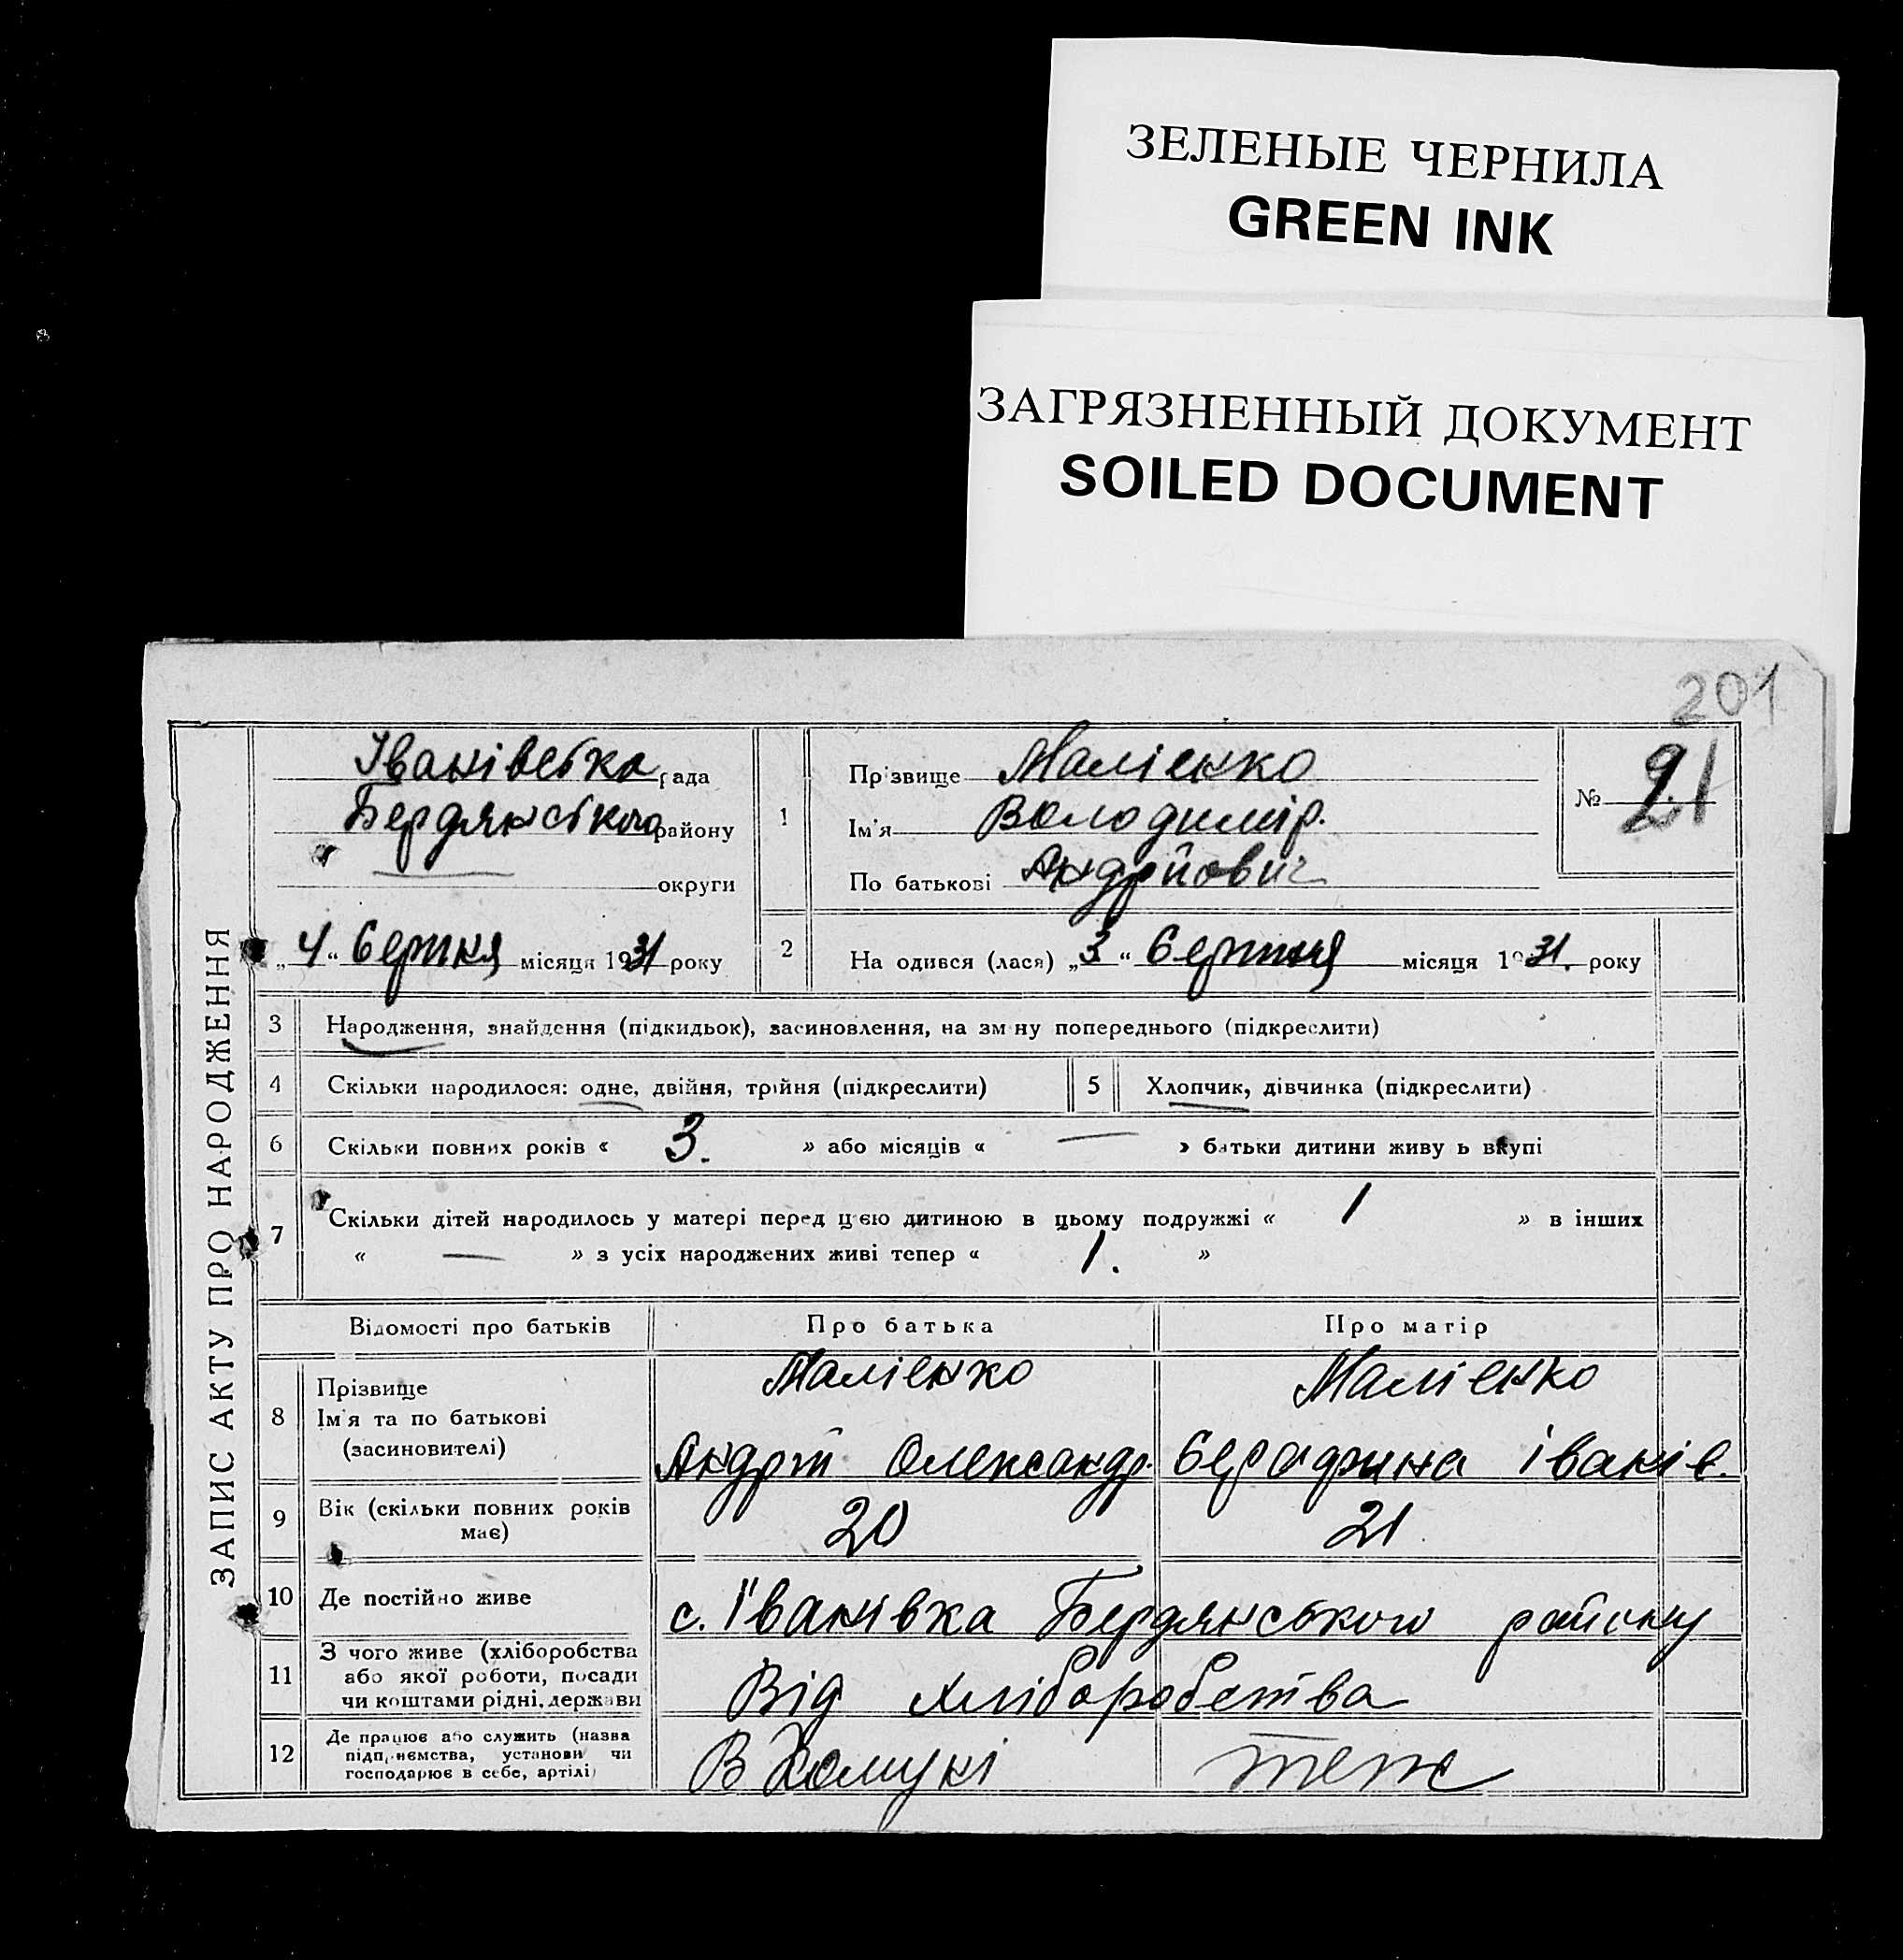 ЗЕЛЕНЫЕ ЧЕРНИЛА
GREEN INK
ЗАГРЯЗНЕННЫЙ ДОКУМЕНТ
SOILED DOCUMENT
201
ЗАПИС АКТУ ПРО НАРОДЖЕННЯ
Іванівська рада
Бердянського району
— округи
„4“ Серпня місяця 1931 року
1 Прізвище Малієнко
Ім'я Володимір.
По батькові Андрійович
№ 21
2 Народився (лася) „3“ Серпня місяця 1931. року
3 Народження, знайдення (підкидьок), засиновлення, на зміну попереднього (підкреслити)
4 Скільки народилося: одне, двійня, трійня (підкреслити)
5 Хлопчик, дівчинка (підкреслити)
6 Скільки повних років « 3. » або місяців « — » батьки дитини живуть вкупі
7 Скільки дітей народилось у матері перед цією дитиною в цьому подружжі « 1 » в інших
« — » з усіх народжених живі тепер « 1. »
Відомості про батьків Про батька Про матір
8 Прізвище Малієнко Малієнко
Ім'я та по батькові
(засиновителі) Андрій Олександр. Іванів.
9 Вік (скільки повних років має) 20 21
10 Де постійно живе с. Іванівка Бердянського району
11 З чого живе (хліборобства
або якої роботи, посади
чи коштами рідні, держави Від хліборобства
12 Де працює або служить (назва
підприємства, установи чи
господарює в себе, артілі) В Комуні теж